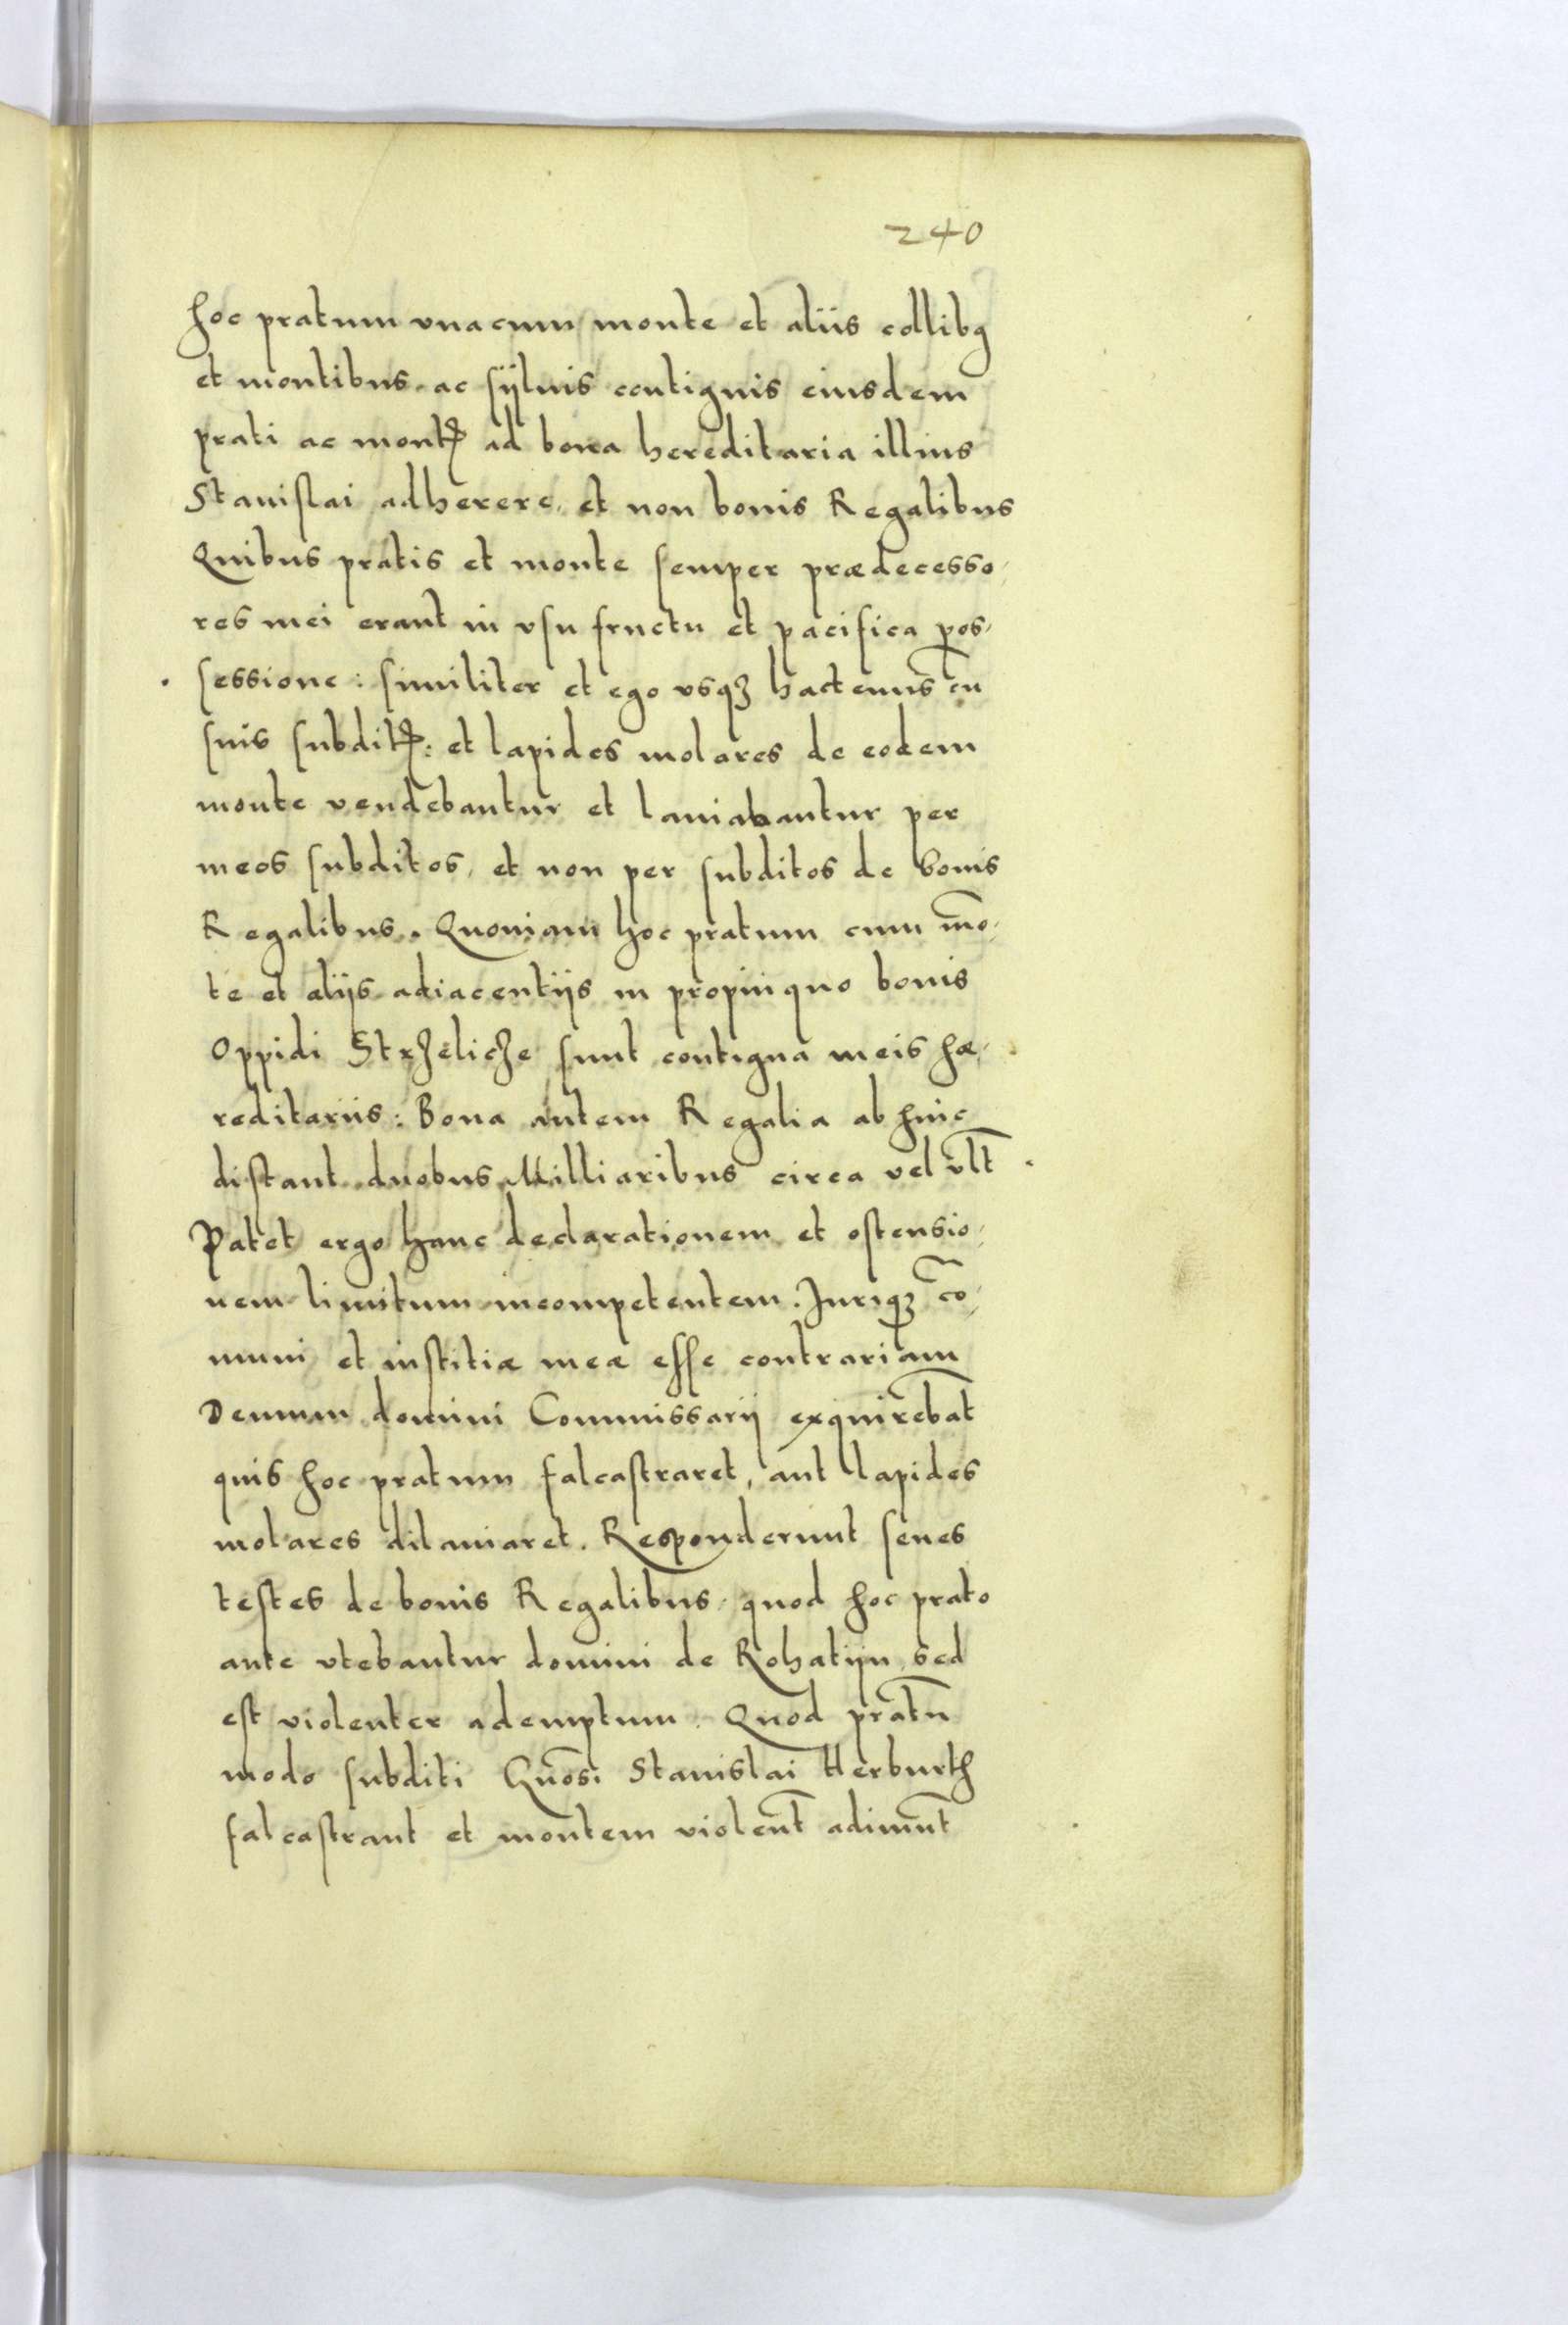 240
hoc pratum vnacum monte et aliis collibꝯ
et montibus ac syluis contiguis eiusdem
prati ac montꝭ ad bona hereditaria illius
Stanislai adherere, et non bonis Regalibus
Quibus pratis et monte semper prædecesso-
res mei erant in vsu fructu et pacifica pos-
sessione: similiter et ego vsqꝫ hactenus cū
suis subditꝭ: et lapides molares de eodem
monte vendebantur et laniabantur per
meos subditos, et non per subditos de bonis
Regalibus. Quoniam hoc pratum cum mō-
te et alijs adiacentijs in propinquo bonis
Oppidi Strzelicze sunt contigua meis hæ-
reditariis: Bona autem Regalia ab hinc
distant duobus Milliaribus circa vel vlt̄
Patet ergo hanc declarationem et ostensio-
nem limitum incompetentem. Juriqꝫ cō-
muni et iustitiæ meæ esse contrariam
Demum domini Commissarij exquirebāt
quis hoc pratum falcastraret, aut lapides
molares dilaniaret. Responderunt senes
testes de bonis Regalibus quod hoc prato
ante vtebantur domini de Rohatyn, sed
est violenter ademptum. Quod pratū
modo subditi Gn̄osi Stanislai Herburth
falcastrant et montem violent̄ adimūt